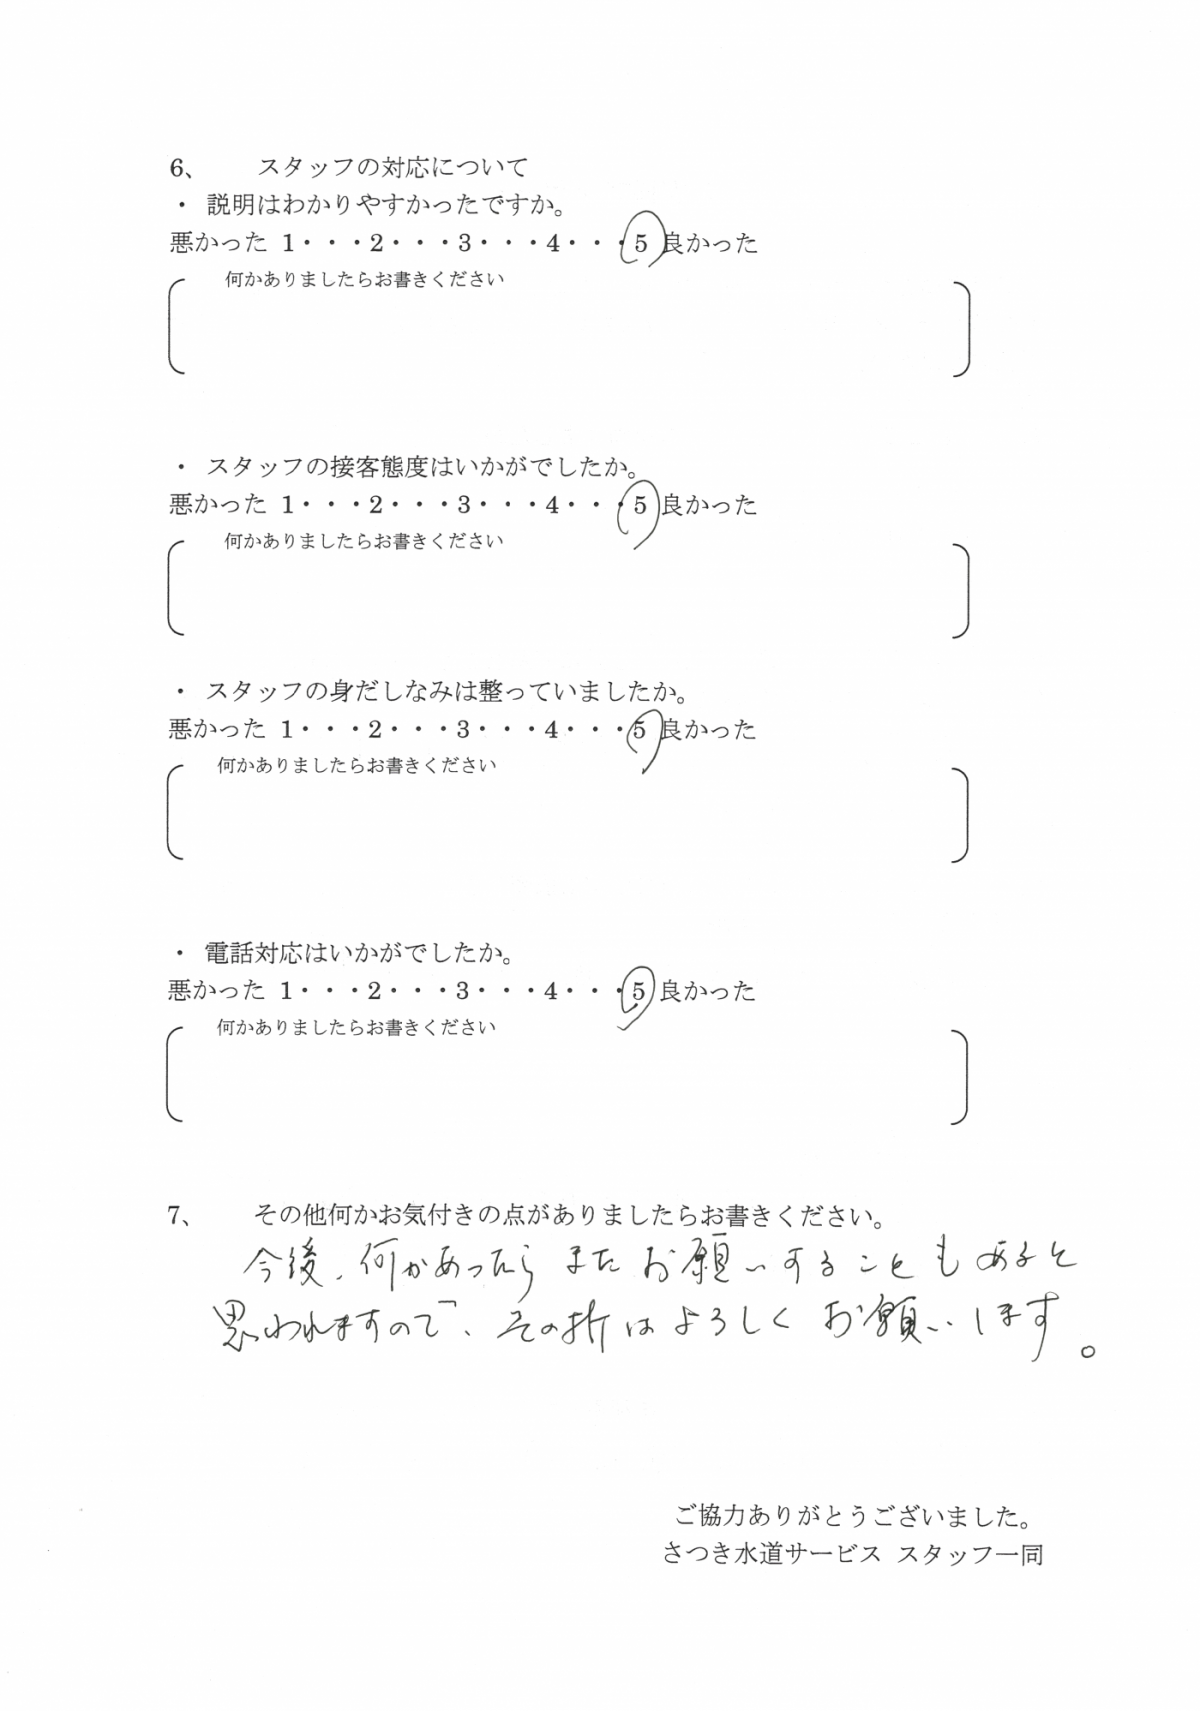 6、 スタッフの対応について
・ 説明はわかりやすかったですか。
悪かった 1・・・2・・・3・・・4・・・5 良かった
何かありましたらお書きください
・ スタッフの接客態度はいかがでしたか。
悪かった 1・・・2・・・3・・・4・・・5 良かった
何かありましたらお書きください
・ スタッフの身だしなみは整っていましたか。
悪かった 1・・・2・・・3・・・4・・・5 良かった
何かありましたらお書きください
・ 電話対応はいかがでしたか。
悪かった 1・・・2・・・3・・・4・・・5 良かった
何かありましたらお書きください
7、 その他何かお気付きの点がありましたらお書きください。
今後、何かあったら またお願いすることもあると
思われますので、その折はよろしくお願いします。
ご協力ありがとうございました。
さつき水道サービス スタッフ一同